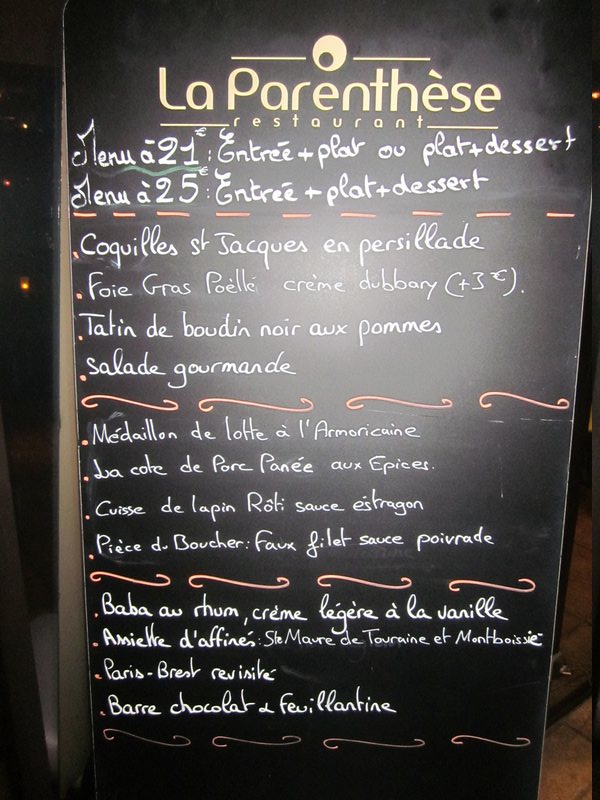 La Parenthèse
restaurant
Menu à 21€ : Entrée + plat ou plat + dessert
Menu à 25€ : Entrée + plat + dessert
. Coquilles St Jacques en persillade
. Foie Gras Poëllé crème dubbary (+3€).
. Tatin de boudin noir aux pommes
. Salade gourmande
. Médaillon de lotte à l'Armoricaine
. La cote de Porc Panée aux Epices.
. Cuisse de lapin Rôti sauce estragon
. Pièce du Boucher : Faux filet sauce poivrade
. Baba au rhum, crème légère à la vanille
. Assiette d'affinés : Ste Maure de Touraine et Montboissié
. Paris-Brest revisité
. Barre chocolat & feuillantine